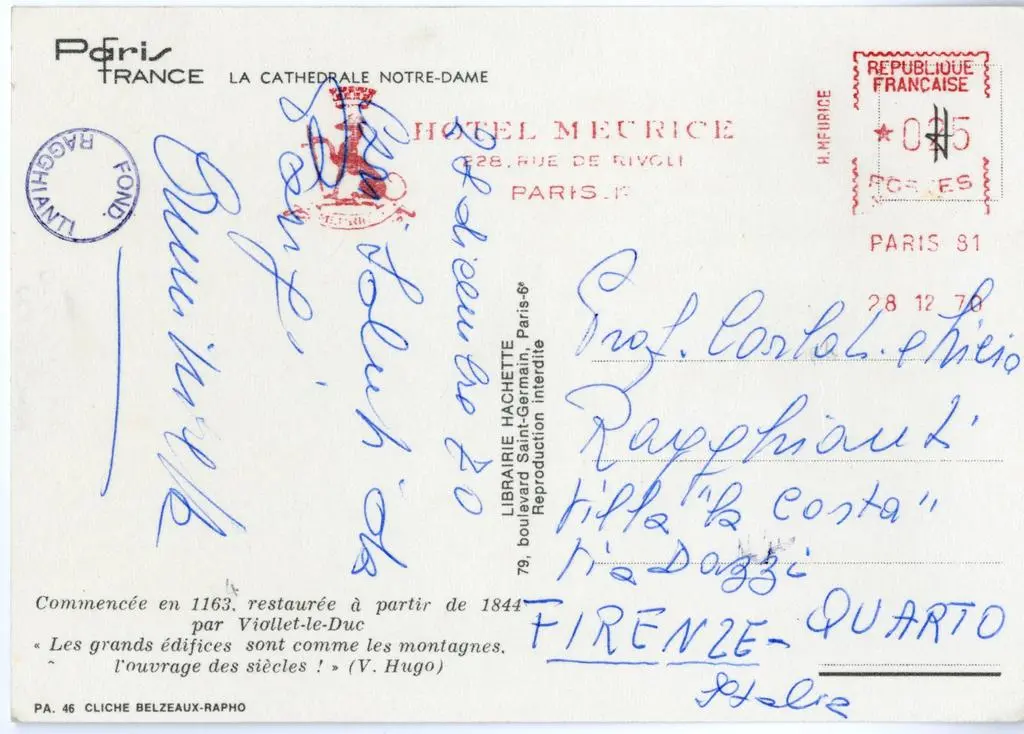 Paris
FRANCE LA CATHEDRALE NOTRE-DAME
HOTEL MEURICE
228. RUE DE RIVOLI
PARIS
MEURICE
H. MEURICE
REPUBLIQUE
FRANÇAISE
POSTES
PARIS 81
28 12 70
FOND. RAGGHIANTI
dicembre 70
Cari saluti da
Parigi
LIBRAIRIE HACHETTE
79, boulevard Saint-Germain, Paris-6e
Reproduction interdite
Prof. Carlo L. e Licia
Ragghianti
Villa "la Costa"
Via Dazzi
FIRENZE - QUARTO
Italia
Commencée en 1163, restaurée à partir de 1844
par Viollet-le-Duc
« Les grands édifices sont comme les montagnes,
l'ouvrage des siècles ! » (V. Hugo)
PA. 46 CLICHE BELZEAUX-RAPHO